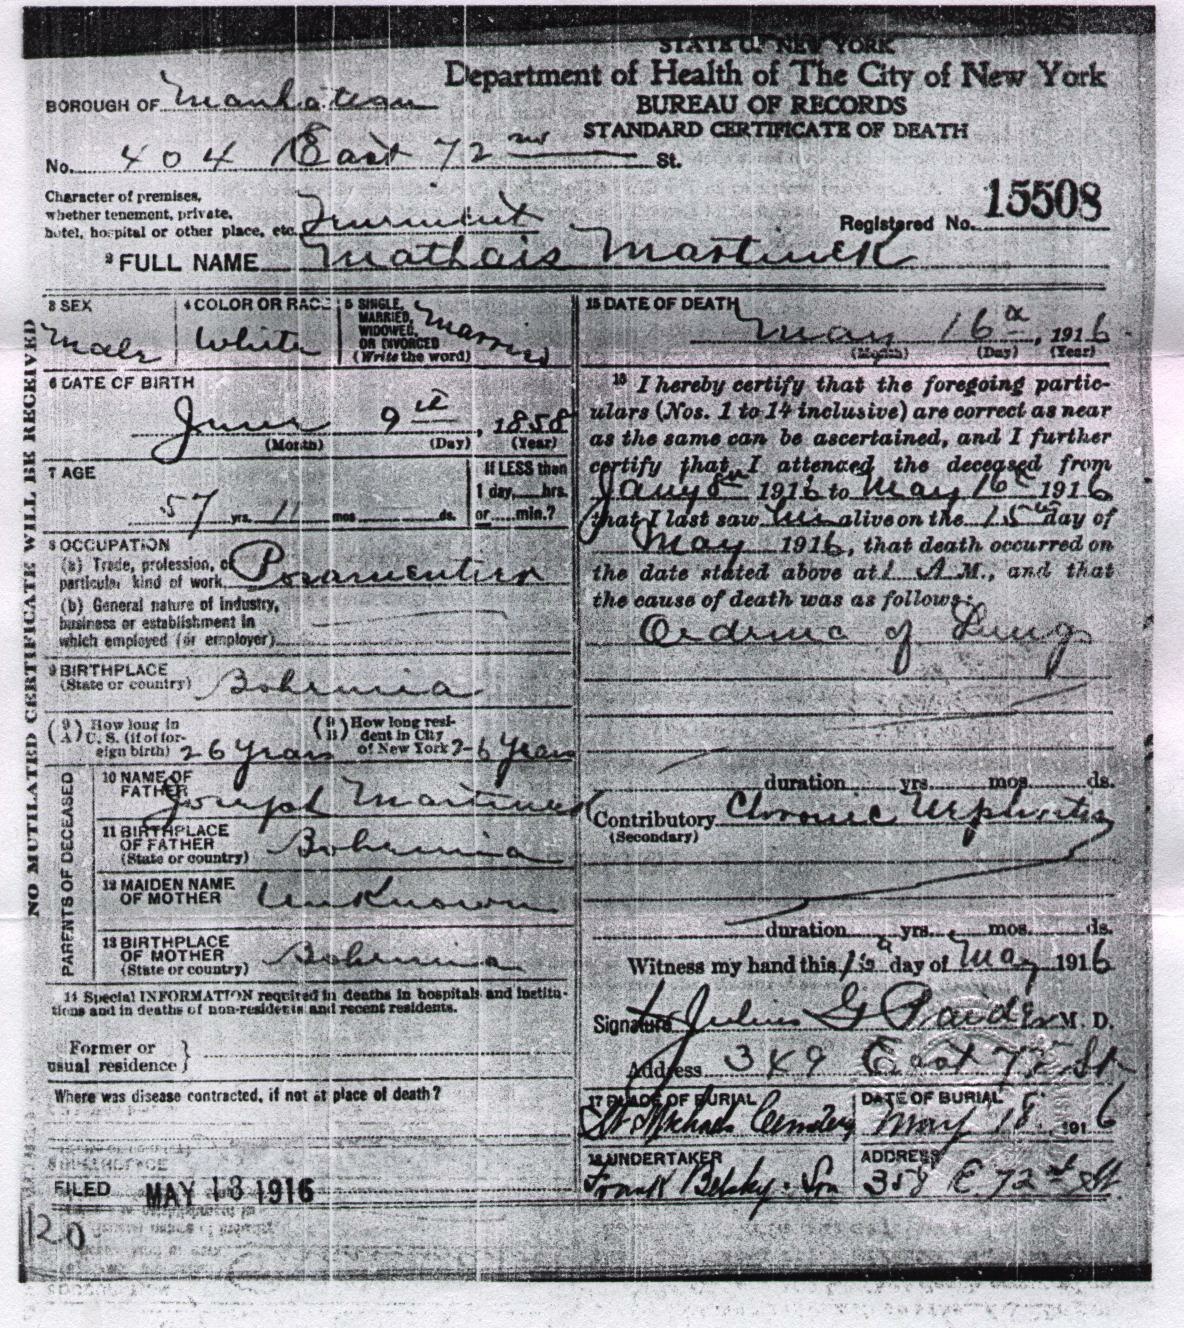 STATE OF NEW YORK
Department of Health of The City of New York
BUREAU OF RECORDS
STANDARD CERTIFICATE OF DEATH
BOROUGH OF Manhattan
No. 404 East 72nd St.
Character of premises,
whether tenement, private,
hotel, hospital or other place, etc.
Registered No. 15508
2 FULL NAME Mathais Martinek
NO MUTILATED CERTIFICATE WILL BE RECEIVED
3 SEX
Male
4 COLOR OR RACE
White
5 SINGLE,
MARRIED,
WIDOWED,
OR DIVORCED
(Write the word)
Married
6 DATE OF BIRTH
June 9th, 1858
(Month) (Day) (Year)
7 AGE
57 yrs. 11 mos ds.
If LESS than
1 day, hrs.
or min.?
8 OCCUPATION
(a) Trade, profession, or
particular kind of work Posamentier
(b) General nature of industry,
business or establishment in
which employed (or employer)
9 BIRTHPLACE
(State or country) Bohemia
(9 A) How long in
U. S. (if of for-
eign birth) 26 years
(9 B) How long resi-
dent in City
of New York 26 years
PARENTS OF DECEASED
10 NAME OF
FATHER
Joseph Martinek
11 BIRTHPLACE
OF FATHER
(State or country) Bohemia
12 MAIDEN NAME
OF MOTHER Unknown
13 BIRTHPLACE
OF MOTHER
(State or country) Bohemia
14 Special INFORMATION required in deaths in hospitals and institu-
tions and in deaths of non-residents and recent residents.
Former or
usual residence }
Where was disease contracted, if not at place of death?
FILED MAY 18 1916
120
15 DATE OF DEATH
May 16th, 1916
(Month) (Day) (Year)
16 I hereby certify that the foregoing partic-
ulars (Nos. 1 to 14 inclusive) are correct as near
as the same can be ascertained, and I further
certify that I attended the deceased from
Jany 8th 1916 to May 16th 1916
that I last saw him alive on the 15th day of
May 1916, that death occurred on
the date stated above at 1 A M., and that
the cause of death was as follows:
Oedema of Lungs
duration yrs. mos. ds.
Contributory Chronic Nephritis
(Secondary)
duration yrs. mos. ds.
Witness my hand this day of May 1916
Signature Julius G M. D.
Address 349 East 72 St
17 PLACE OF BURIAL
St Michaels Cemetery
DATE OF BURIAL
May 18. 1916
18 UNDERTAKER
Frank Belsky & Son
ADDRESS
358 E 72nd St